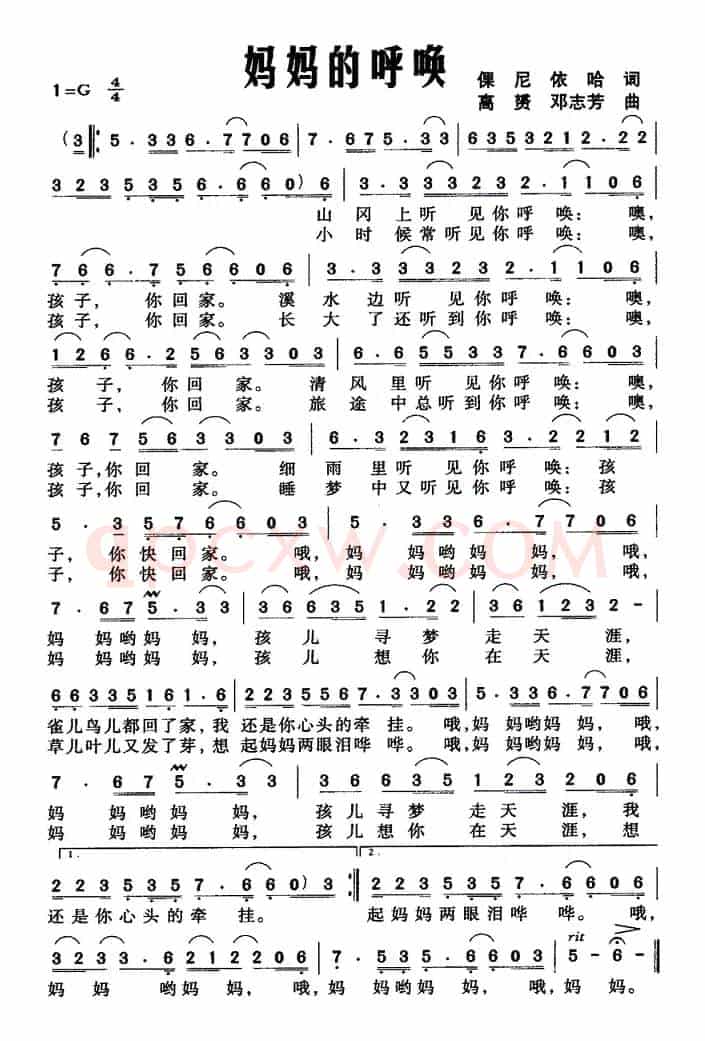 妈妈的呼唤
1=G 4/4
倮尼依哈 词
高赟 邓志芳 曲
(3 ‖: 5 . 3 3 6 . 7 7 0 6 | 7 . 6 7 5 . 3 3 | 6 3 5 3 2 1 2 . 2 2 |
3 2 3 5 3 5 6 . 6 6 0 ) 6 | 3 . 3 3 3 2 3 2 . 1 1 0 6 |
山 冈 上 听 见 你 呼 唤： 噢，
小 时 候 常 听 见 你 呼 唤： 噢，
7 6 6 . 7 5 6 6 0 6 | 3 . 3 3 3 2 3 2 . 1 1 0 6 |
孩 子， 你 回 家。 溪 水 边 听 见 你 呼 唤： 噢，
孩 子， 你 回 家。 长 大 了 还 听 到 你 呼 唤： 噢，
1 2 6 6 . 2 5 6 3 3 0 3 | 6 . 6 5 5 3 3 7 . 6 6 0 3 |
孩 子， 你 回 家。 清 风 里 听 见 你 呼 唤： 噢，
孩 子， 你 回 家。 旅 途 中 总 听 到 你 呼 唤： 噢，
7 6 7 5 6 3 3 0 3 | 6 . 3 2 3 1 6 3 . 2 2 1 2 |
孩 子，你 回 家。 细 雨 里 听 见 你 呼 唤： 孩
孩 子，你 回 家。 睡 梦 中 又 听 见 你 呼 唤： 孩
5 . 3 5 7 6 6 0 3 | 5 . 3 3 6 . 7 7 0 6 |
子， 你 快 回 家。 哦， 妈 妈 哟 妈 妈， 哦，
子， 你 快 回 家。 哦， 妈 妈 哟 妈 妈， 哦，
qpcxw.COM
7 . 6 7 5 . 3 3 | 3 6 6 3 5 1 . 2 2 | 3 6 1 2 3 2 - |
妈 妈 哟 妈 妈， 孩 儿 寻 梦 走 天 涯，
妈 妈 哟 妈 妈， 孩 儿 想 你 在 天 涯，
6 6 3 3 5 1 6 1 . 6 | 2 2 3 5 5 6 7 . 3 3 0 3 | 5 . 3 3 6 . 7 7 0 6 |
雀儿鸟儿都回了家，我 还是你心头的牵 挂。 哦，妈 妈哟妈 妈， 哦，
草儿叶儿又发了芽，想 起妈妈两眼泪哗 哗。 哦，妈 妈哟妈 妈， 哦，
7 . 6 7 5 . 3 3 | 3 6 6 3 5 1 2 3 2 0 6 |
妈 妈 哟 妈 妈， 孩 儿 寻 梦 走 天 涯， 我
妈 妈 哟 妈 妈， 孩 儿 想 你 在 天 涯， 想
1. 2.
2 2 3 5 3 5 7 . 6 6 0 ) 3 :‖ 2 2 3 5 3 5 7 . 6 6 0 6 |
还 是 你 心 头 的 牵 挂。 起 妈 妈 两 眼 泪 哗 哗。 哦，
rit
3 2 3 3 . 6 2 1 2 2 0 6 | 7 . 5 3 5 . 6 6 0 3 | 5 - 6 - ‖
妈 妈 哟 妈 妈， 哦， 妈 妈 哟 妈 妈， 哦， 妈 妈。